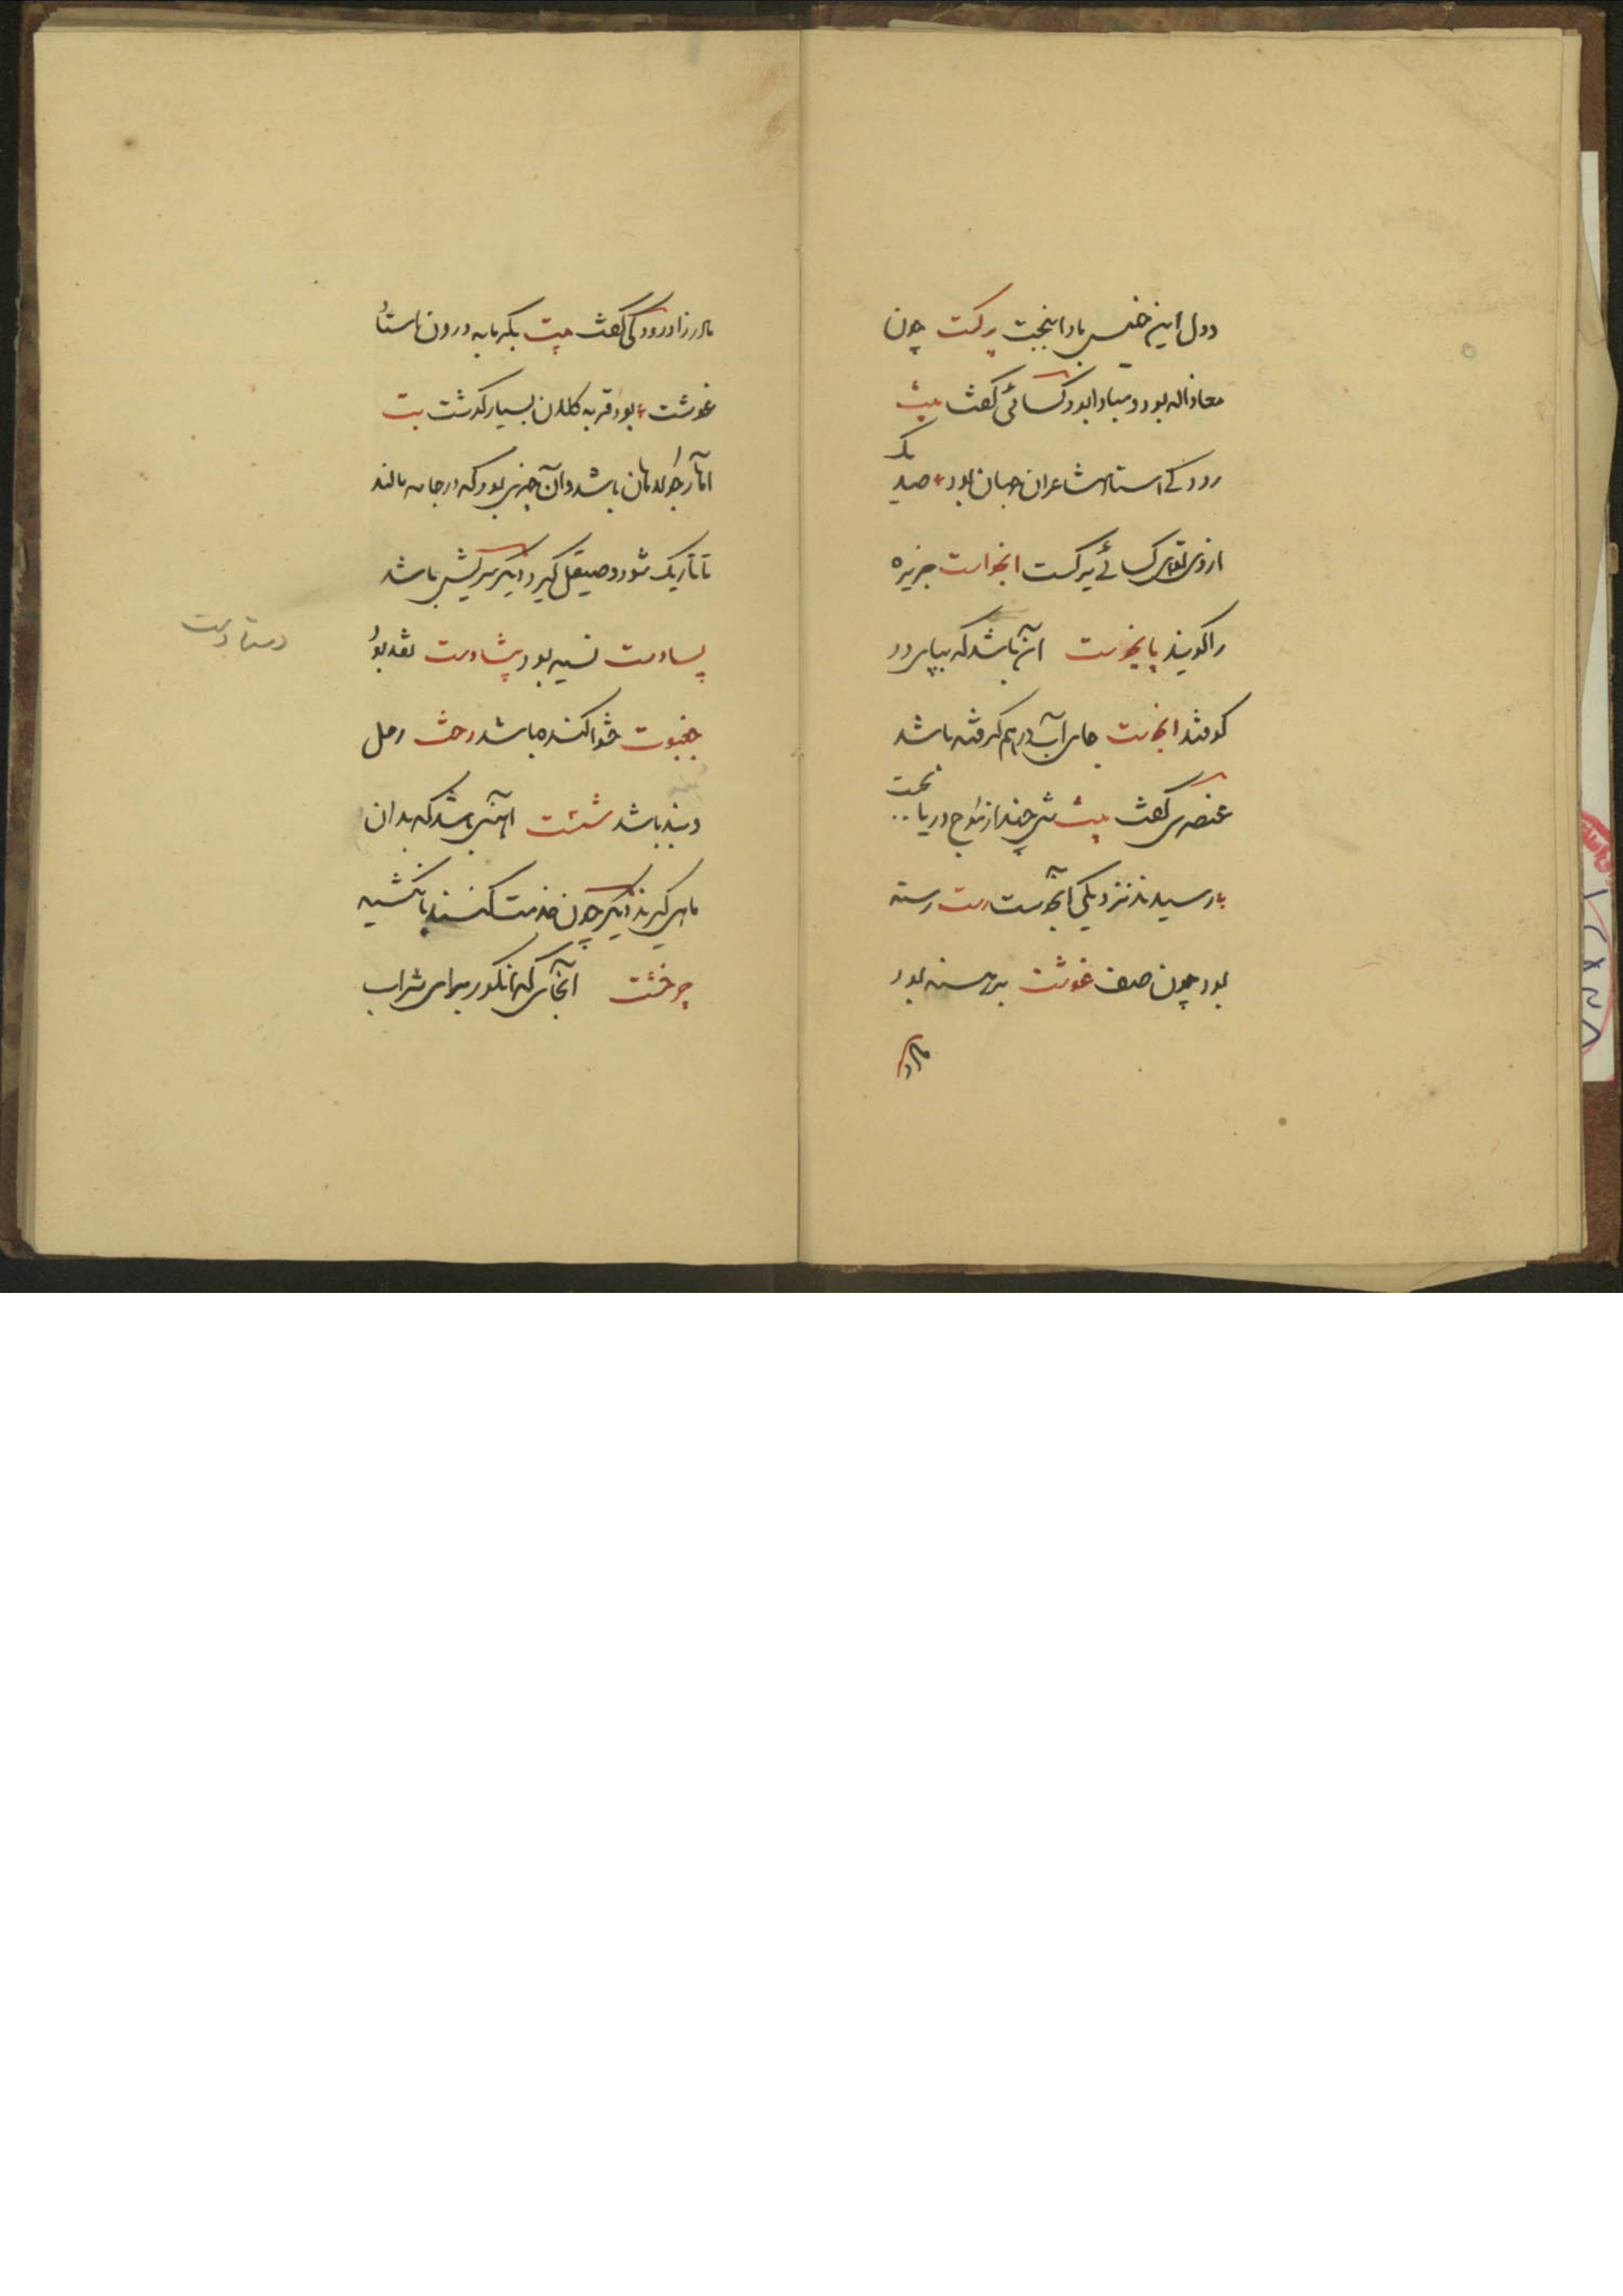 دول این خسیس باد انجنت پرگست چون
معاذاله بود و مبادا بود کسائی گفت بیت
رودکی استاد شاعران جهان بود، صد یک
ازوی توی کسائے پرگست انجواست جزیره
را گویند پایخوست آن باشد که بپای در
کوفتند انجوست جای آب درهم گرفته باشد
عنصری گفت بیت تنی چند از موج دریا نجست
رسیدند نزدیکی آبخوست رست رسته
بود چون صف غوشت برهنه بود
مادرزاد
مادرزاد رودکی گفت بیت بگرمابه درون استاد
غوشت بود فربه کلان بسیار گوشت بت
آهار جولاهان باشد و آن چیزی بود که در جامه مالند
تا تاریک شود و صیقل گیرد دیگر سریشی باشد
پساوست نسیه بود پشاوست نقد بود
دستادست
جغبوت حشوآکنده باشد رخت رحل
و بند باشد شست آهنی باشد که بدان
ماهی گیرند دیگر چون خدمت کنند یا نشینه
چرخشت آنجای که انگور برای شراب